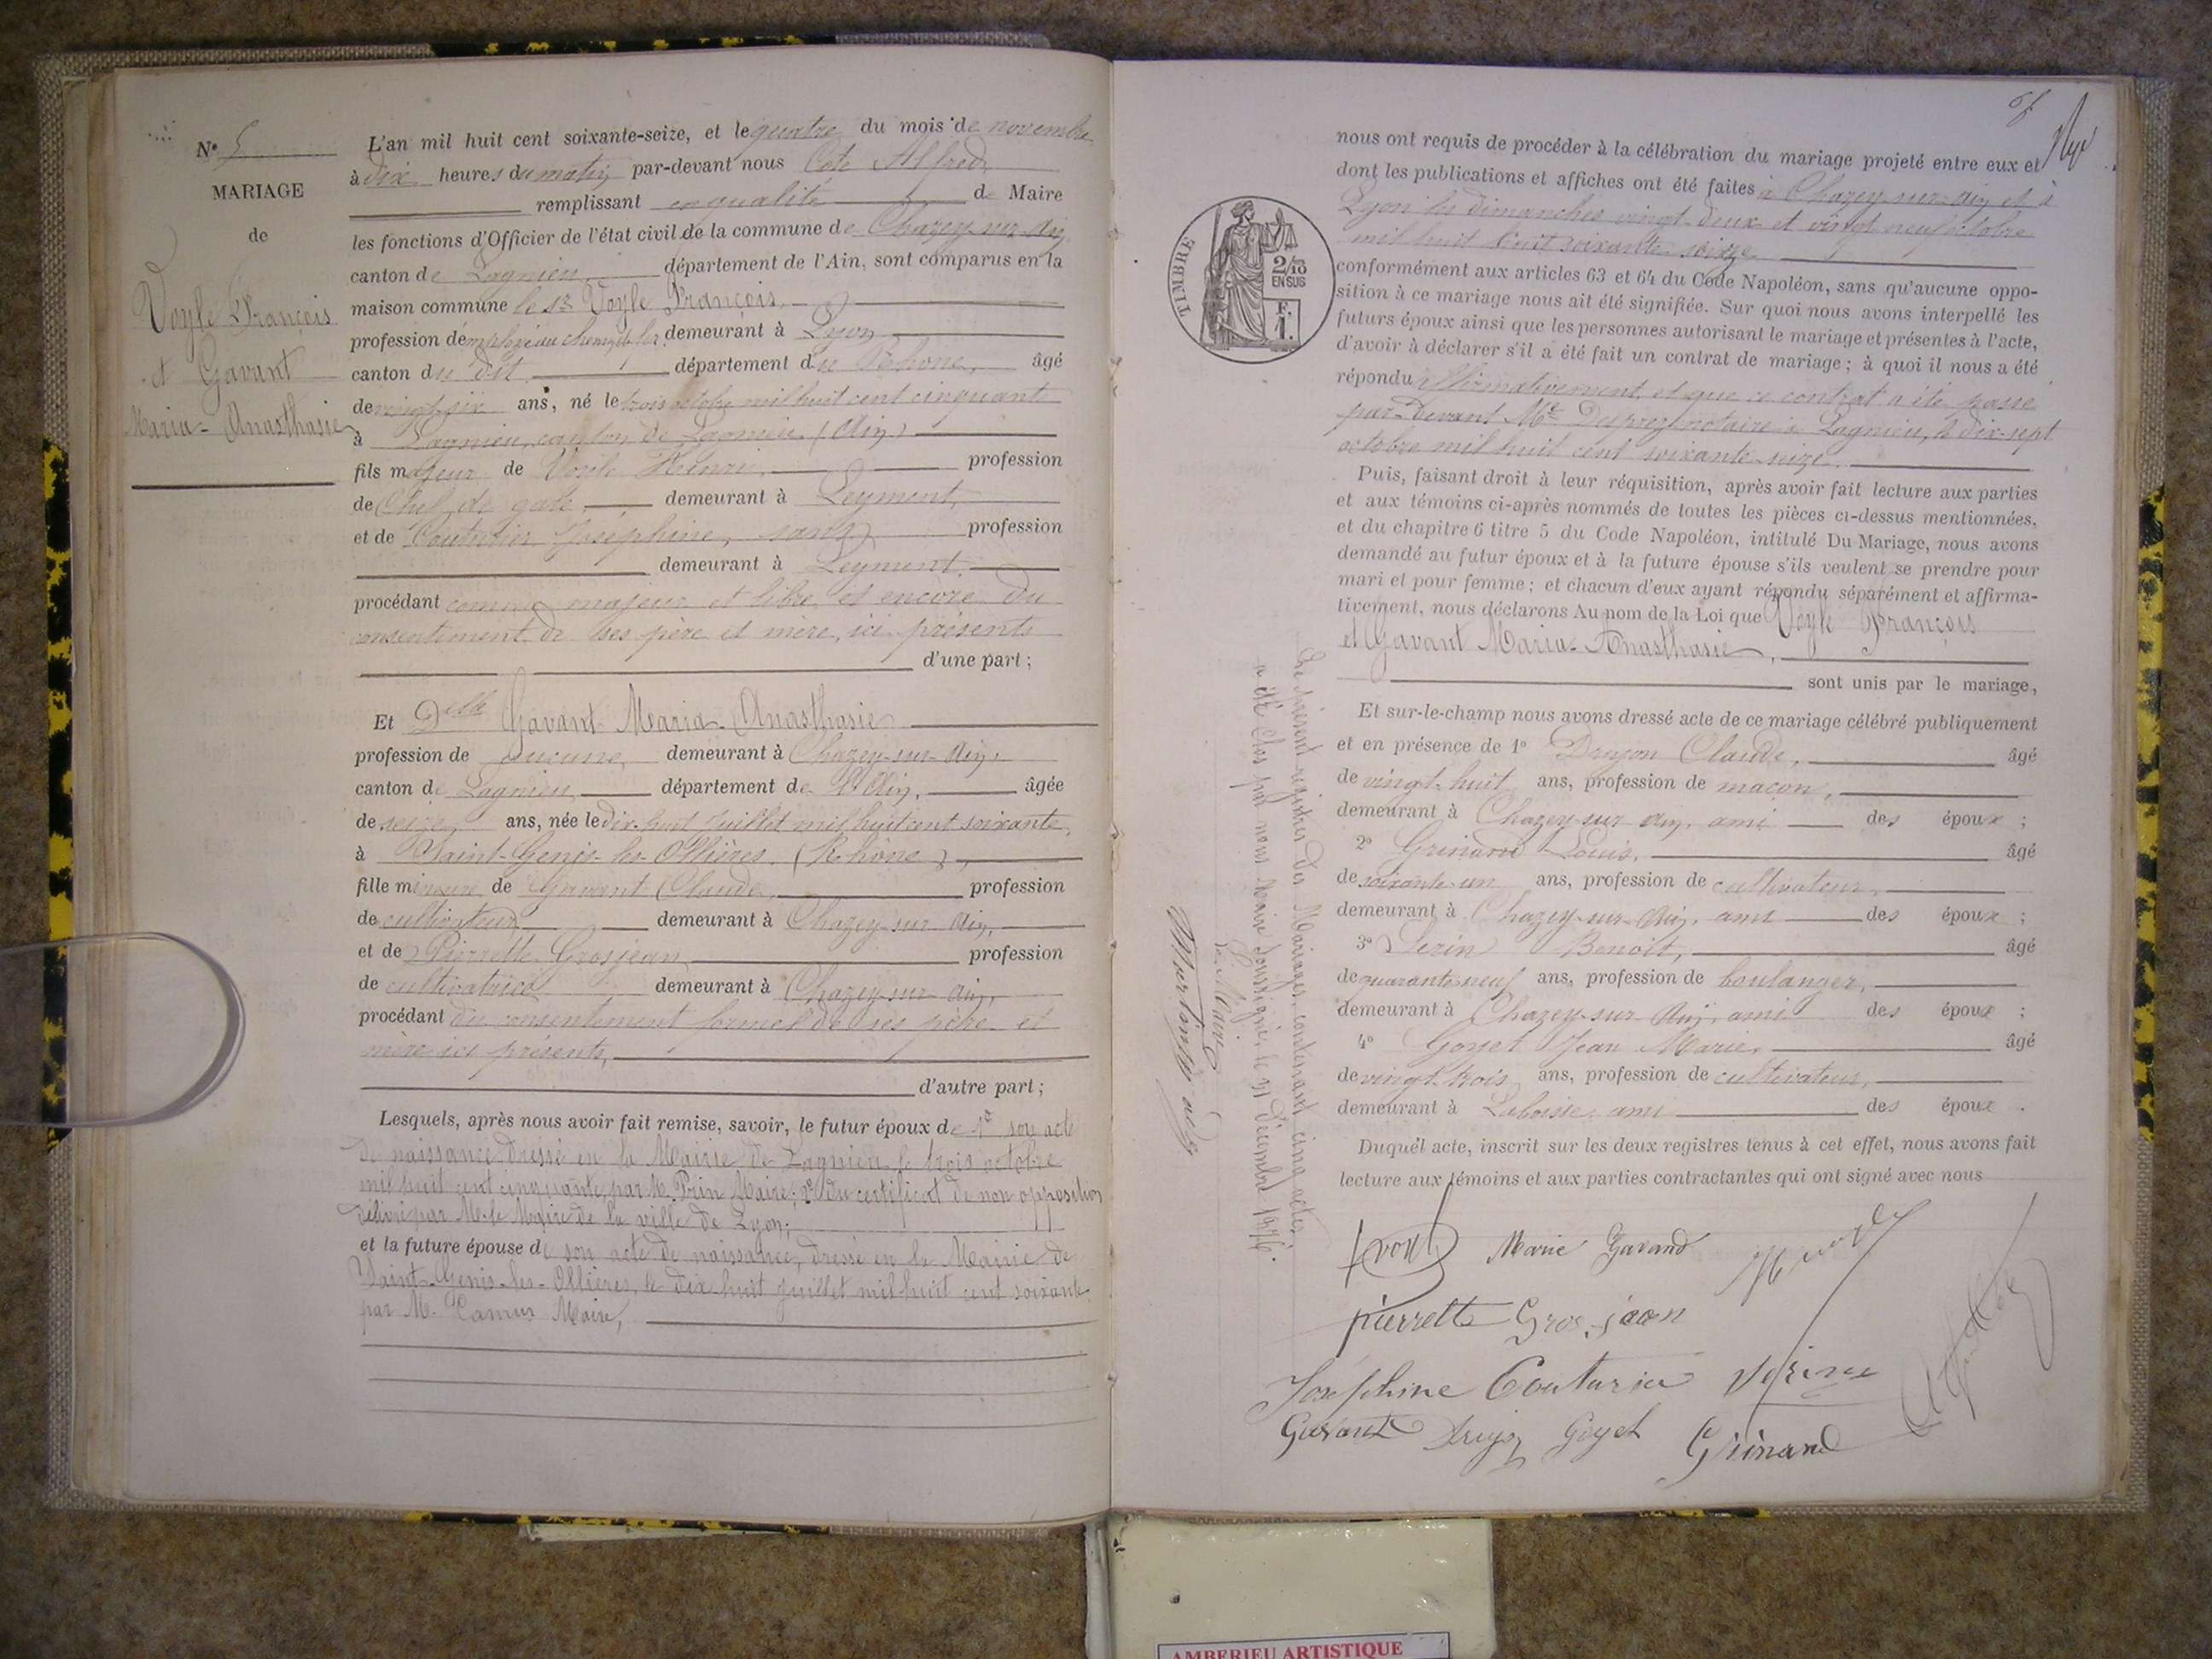 N° 5
MARIAGE
de
Voyle François
et Gavant
Maria-Anasthasie
L'an mil huit cent soixante-seize, et le quatre du mois de novembre
à dix heures du matin par-devant nous Cote Alfred
remplissant en qualité de Maire
les fonctions d'Officier de l'état civil de la commune de Chazey-sur-Ain,
canton de Lagnieu département de l'Ain, sont comparus en la
maison commune le Sr Voyle François
profession d'employé au chemin de fer demeurant à Lyon
canton du dit département du Rhône, âgé
de vingt-six ans, né le trois octobre mil huit cent cinquante
à Lagnieu, canton de Lagnieu (Ain)
fils majeur de Voyle Henri, profession
de Chef de gare demeurant à Leyment,
et de Couturier Joséphine, sans profession
demeurant à Leyment.
procédant comme majeur et libre et encore du
consentement de ses père et mère, ici présents
d'une part;
Et Delle Gavant Maria-Anasthasie
profession de aucune, demeurant à Chazey-sur-Ain,
canton de Lagnieu département de l'Ain, âgée
de seize ans, née le dix-huit juillet mil huit cent soixante,
à Saint-Genis-les-Ollières, (Rhône),
fille mineure de Gavant Claude, profession
de cultivateur demeurant à Chazey-sur-Ain,
et de Pierrette Grosjean profession
de cultivatrice demeurant à Chazey-sur-Ain,
procédant du consentement formel de ses père et
mère ici présents,
d'autre part;
Lesquels, après nous avoir fait remise, savoir, le futur époux de 1° son acte
de naissance dressé en la Mairie de Lagnieu le trois octobre
mil huit cent cinquante, par M. Prin Maire; 2° du certificat de non opposition
délivré par M. le Maire de la ville de Lyon;
et la future épouse de son acte de naissance, dressé en la Mairie de
Saint-Genis-les-Ollières, le dix-huit juillet mil huit cent soixante
par M. Camus Maire,
nous ont requis de procéder à la célébration du mariage projeté entre eux et
dont les publications et affiches ont été faites à Chazey-sur-Ain et à
Lyon les dimanches vingt-deux et vingt neuf octobre
mil huit cent soixante-seize
TIMBRE
2/10
EN SUS
F.
1.
conformément aux articles 63 et 64 du Code Napoléon, sans qu'aucune oppo-
sition à ce mariage nous ait été signifiée. Sur quoi nous avons interpellé les
futurs époux ainsi que les personnes autorisant le mariage et présentes à l'acte,
d'avoir à déclarer s'il a été fait un contrat de mariage; à quoi il nous a été
répondu affirmativement, et que ce contrat a été passé
par-devant Me Desprez notaire à Lagnieu, le dix-sept
octobre mil huit cent soixante-seize.
Puis, faisant droit à leur réquisition, après avoir fait lecture aux parties
et aux témoins ci-après nommés de toutes les pièces ci-dessus mentionnées,
et du chapitre 6 titre 5 du Code Napoléon, intitulé Du Mariage, nous avons
demandé au futur époux et à la future épouse s'ils veulent se prendre pour
mari et pour femme; et chacun d'eux ayant répondu séparément et affirma-
tivement, nous déclarons Au nom de la Loi que Voyle François
et Gavant Maria-Anasthasie,
sont unis par le mariage,
Et sur-le-champ nous avons dressé acte de ce mariage célébré publiquement
et en présence de 1° Drujon Claude, âgé
de vingt-huit ans, profession de maçon,
demeurant à Chazey-sur-Ain, ami des époux;
2° Grinand Louis, âgé
de soixante-un ans, profession de cultivateur,
demeurant à Chazey-sur-Ain, ami des époux;
3° Serin Benoit, âgé
de quarante-neuf ans, profession de boulanger,
demeurant à Chazey-sur-Ain, ami des époux;
4° Goyet Jean Marie, âgé
de vingt-trois ans, profession de cultivateur,
demeurant à Laboisse, ami des époux.
Duquel acte, inscrit sur les deux registres tenus à cet effet, nous avons fait
lecture aux témoins et aux parties contractantes qui ont signé avec nous
Marie Gavand
pierrette Gros-jean
Joséphine Couturier
Gavant Drujon Goyet Grinand
Le présent registre des Mariages, contenant cinq actes,
a été clos par nous Maire soussigné, le 31 Décembre 1876.
Le Maire
AMBERIEU ARTISTIQUE